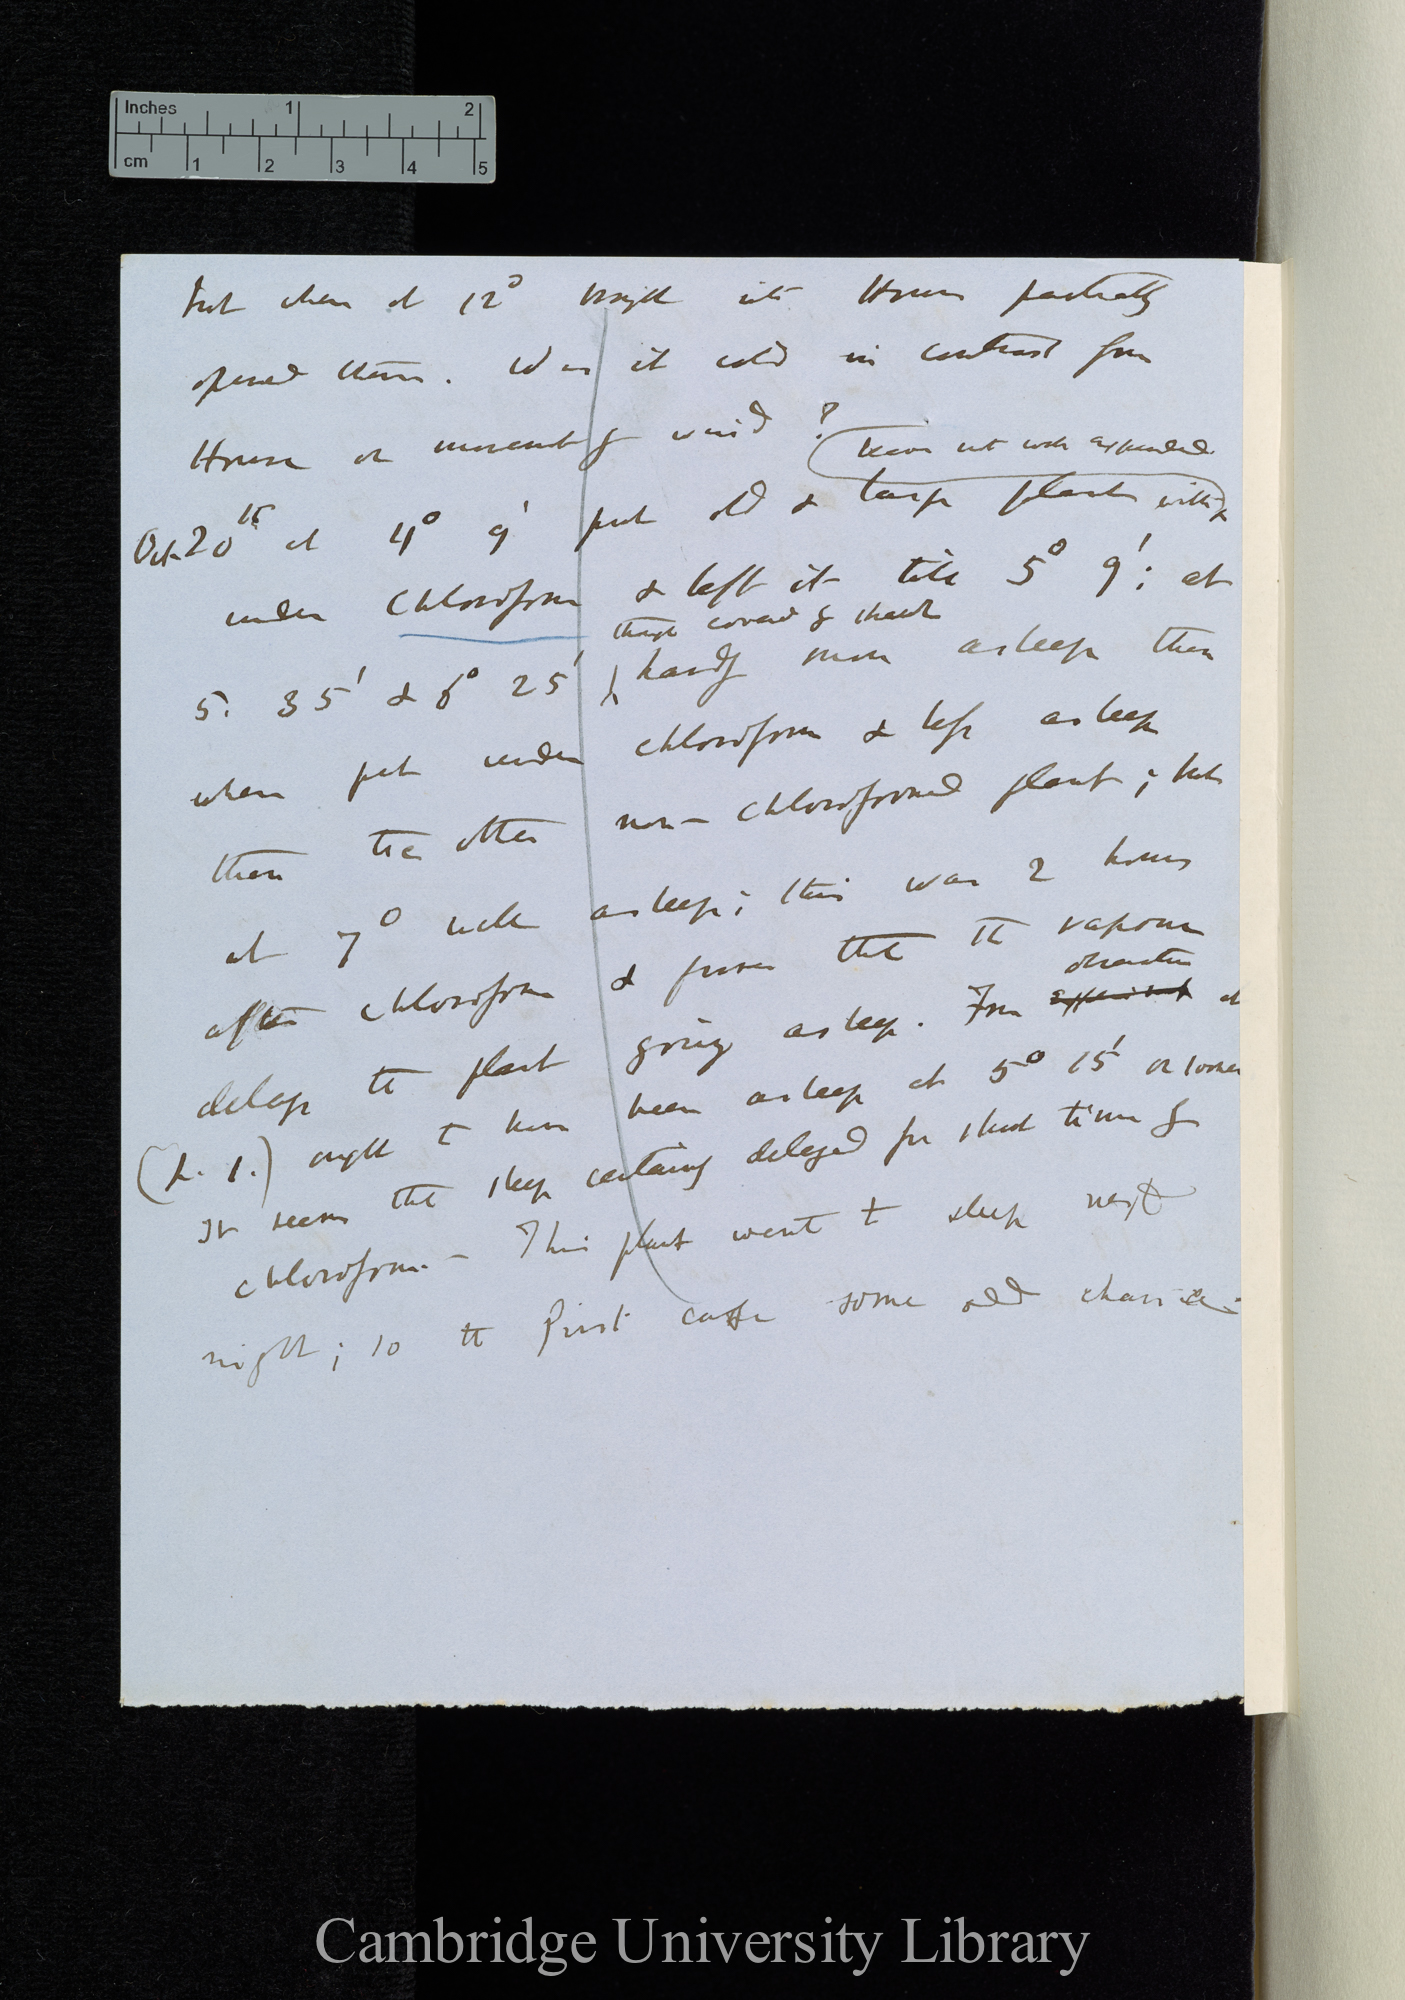 Inches 1 2
cm 1 2 3 4 5
but when at 12° brought into House partially
opened them. Was it cold in contrast from
House or movement of wind?
(leaves not well expanded
Oct 20th at 4° 9' put old & large plant with
under Chloroform & left it till 5° 9'; at
though covered &
5. 35' & 6° 25' hardly more asleep than
when put under chloroform & less asleep
than the other non-chloroformed plant; but
at 7° well asleep; this was 2 hours
after chloroform & proves that the vapour
observation
delays the plant going asleep. From at
(p. 1.) ought to have been asleep at 5° 15' or sooner
It seems that sleep certainly delayed for short time by
chloroform.— This plant went to sleep next
night; so the first case some odd chance.
Cambridge University Library